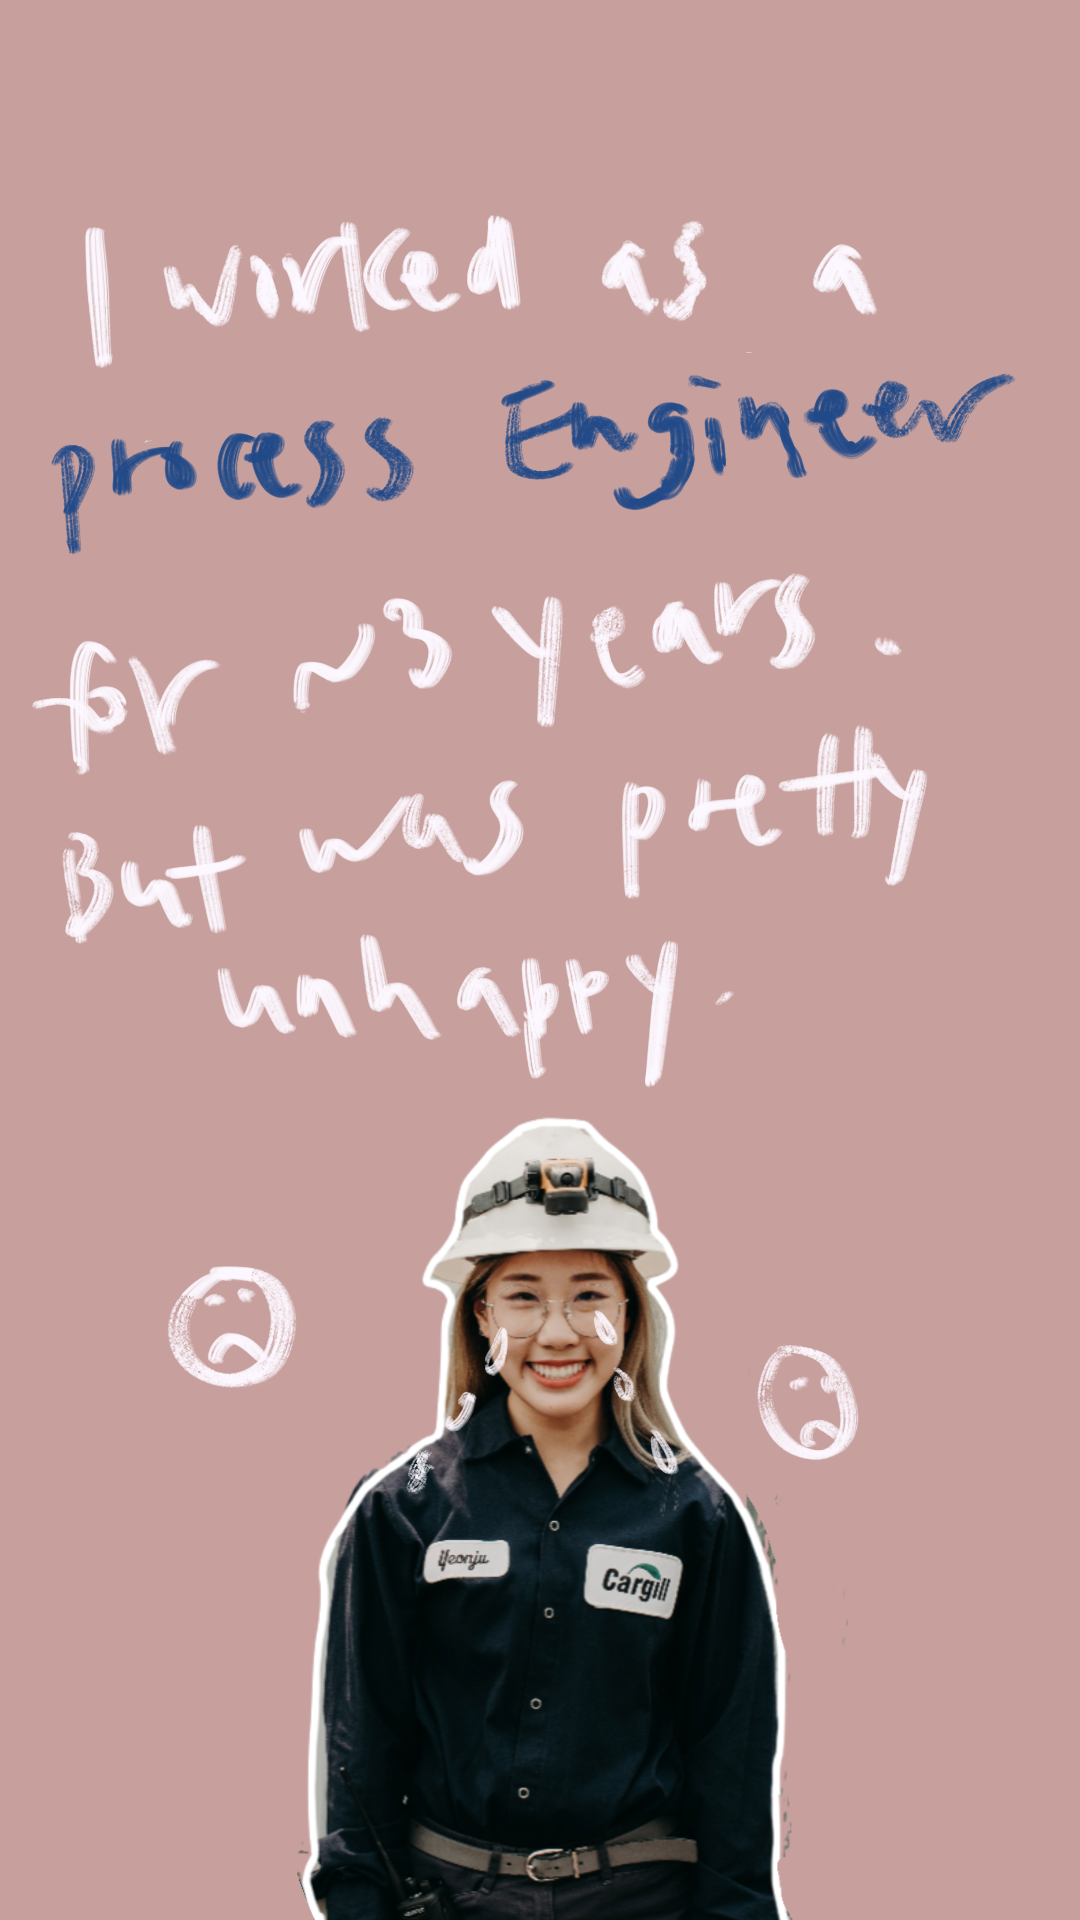 I worked as a
process Engineer
for ~3 years.
But was pretty
unhappy.
Yeonju
Cargill